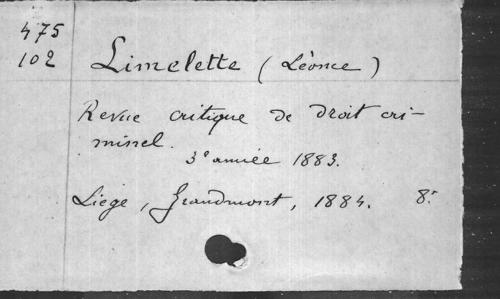 475
102
Limelette (Léonce)
Revue critique de droit cri-
minel.
3e année 1883.
Liége, Grandmont, 1884. 8°.